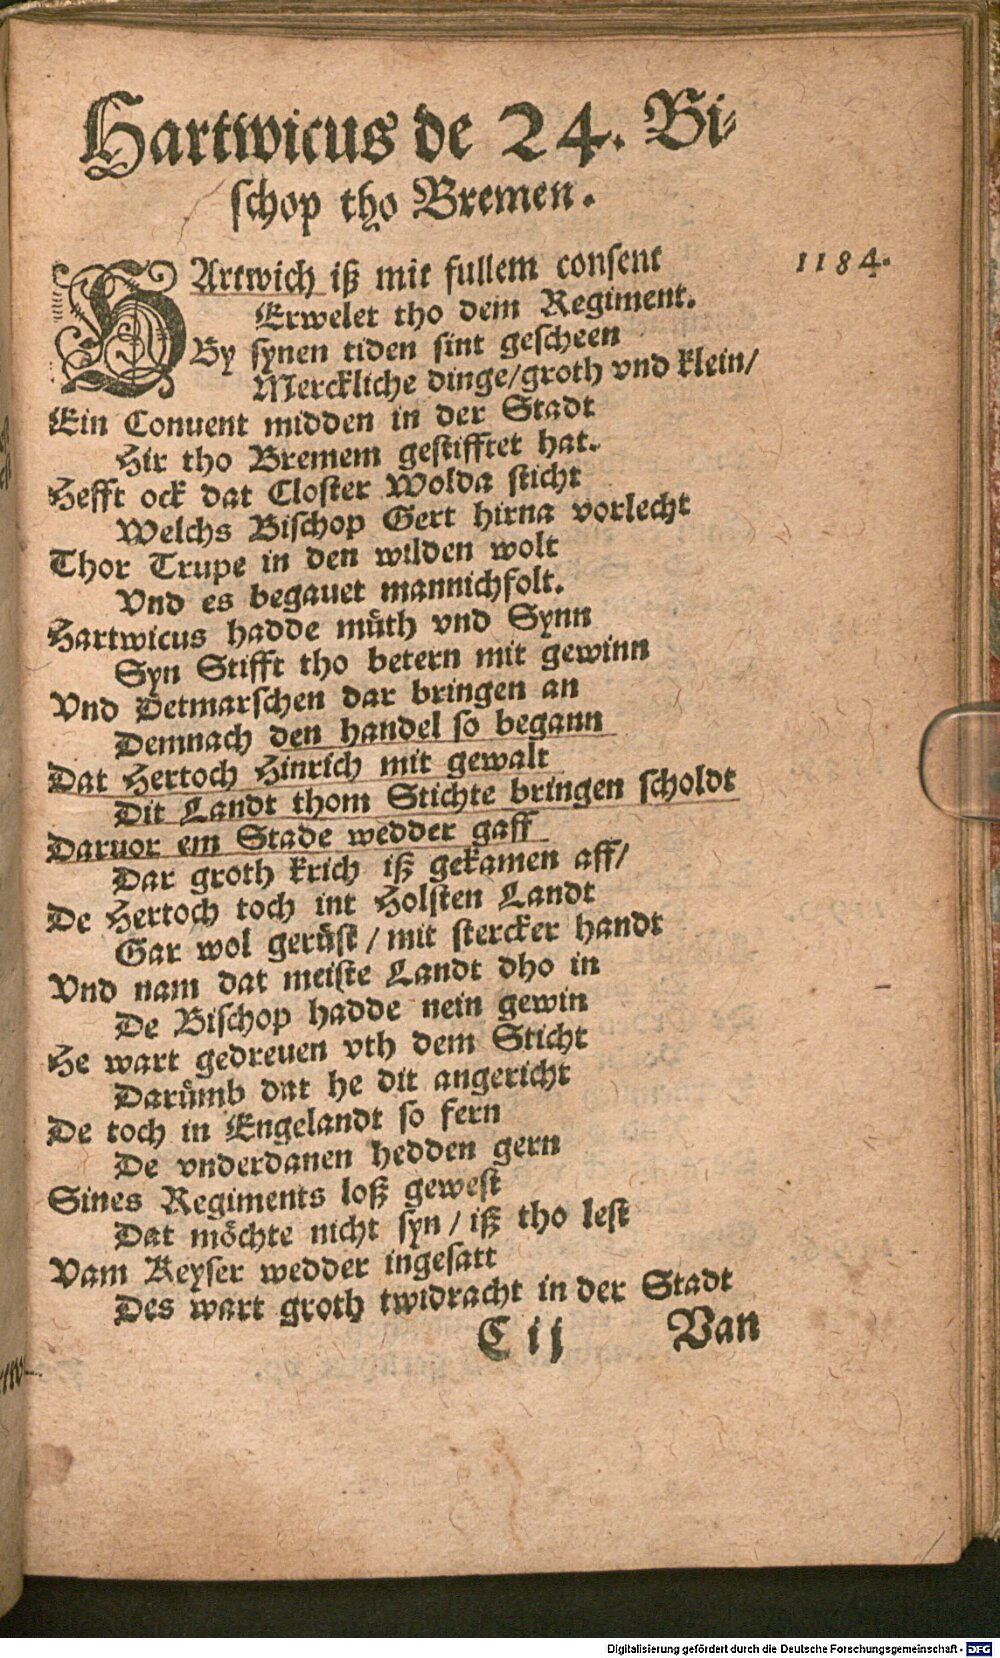 Hartwicus de 24. Bi-
schop tho Bremen.
HArtwich iß mit fullem consent
1184.
Erwelet tho dem Regiment.
By synen tiden sint gescheen
Merckliche dinge/groth vnd klein/
Ein Conuent midden in der Stadt
Hir tho Bremem gestifftet hat.
Hefft ock dat Closter Wolda sticht
Welchs Bischop Gert hirna vorlecht
Thor Trupe in den wilden wolt
Vnd es begauet mannichfolt.
Hartwicus hadde muͤth vnd Synn
Syn Stifft tho betern mit gewinn
Vnd Detmarschen dar bringen an
Demnach den handel so begann
Dat Hertoch Hinrich mit gewalt
Dit Landt thom Stichte bringen scholdt
Daruor em Stade wedder gaff
Dar groth krich iß gekamen aff/
De Hertoch toch int Holsten Landt
Gar wol geruͤst / mit stercker handt
Vnd nam dat meiste Landt dho in
De Bischop hadde nein gewin
He wart gedreuen vth dem Sticht
Daruͤmb dat he dit angericht
De toch in Engelandt so fern
De vnderdanen hedden gern
Sines Regiments loß gewest
Dat moͤchte nicht syn / iß tho lest
Vam Keyser wedder ingesatt
Des wart groth twidracht in der Stadt
C ij
Van
Digitalisierung gefördert durch die Deutsche Forschungsgemeinschaft - DFG